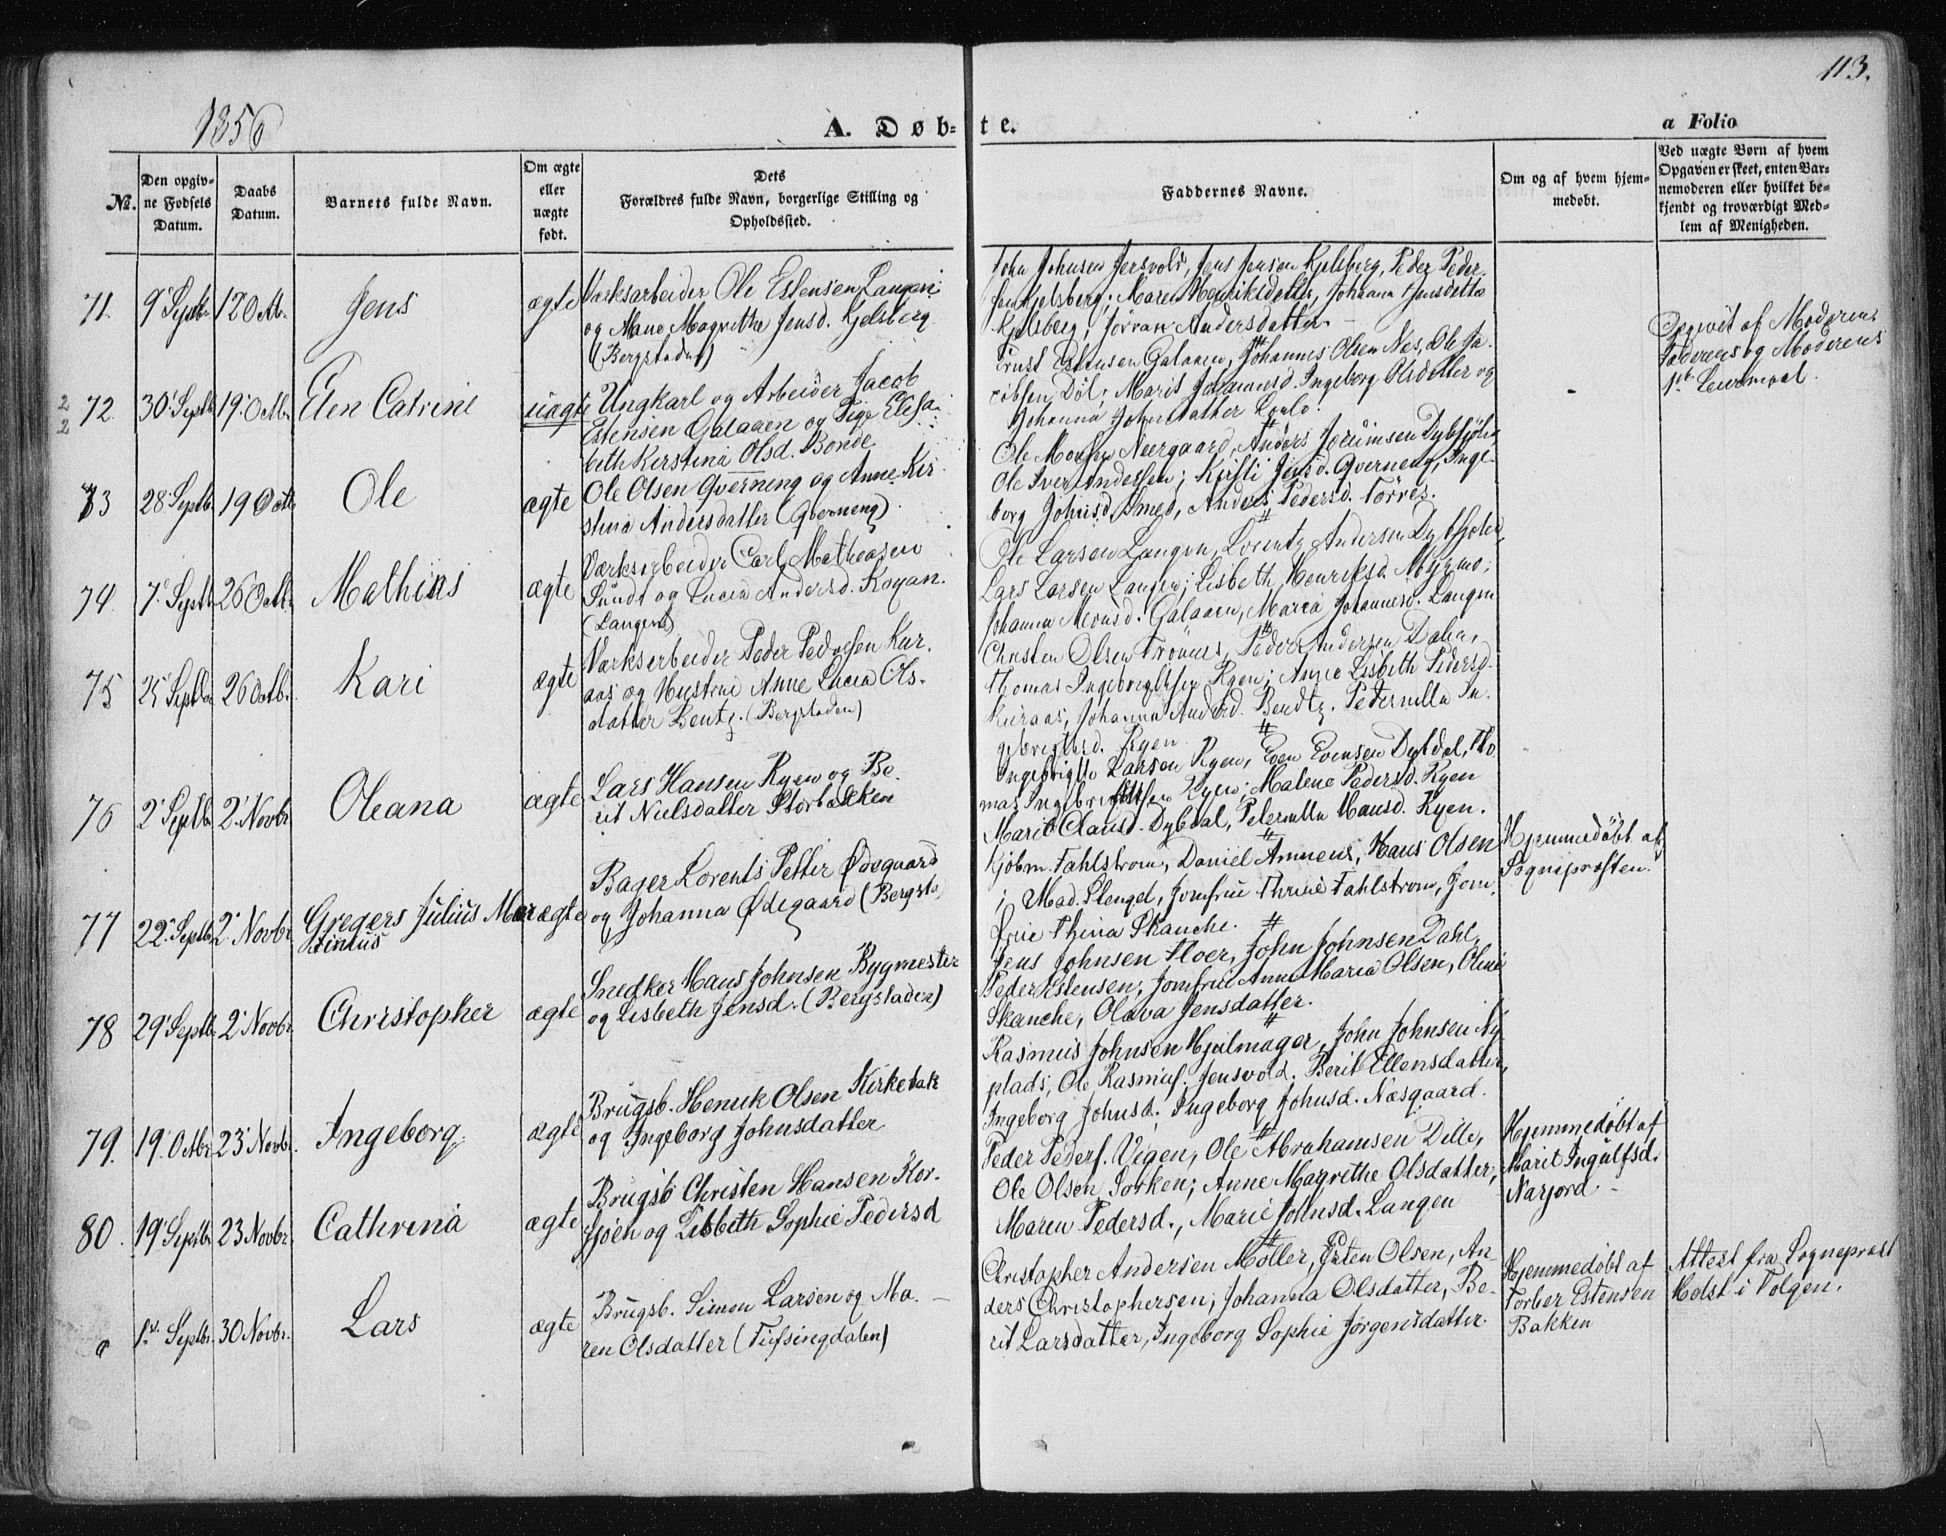 113.
1856
A. Døb-
te.
a Folio
№.
Den opgiv-
ne Fødsels
Datum.
Daabs
Datum.
Barnets fulde Navn.
Om ægte
eller
uægte
født.
Dets
Forældres fulde Navn, borgerlige Stilling og
Opholdssted.
Faddernes Navne.
Om og af hvem hjem-
medøbt.
Ved uægte Børn af hvem
Opgaven er skeet, enten Bar-
nemoderen eller hvilket be-
kjendt og troværdigt Med-
lem af Menigheden.
71. 9' Septbr 12 Octb. Jens ægte
Værksarbeider Ole Estensen Langen
og Mane Magrethe Jensd. Kjelsberg
(Bergstaden)
John Johnsen Jensvold, Jens Jensen Kjelsberg, Peder Peder-
sen Kjelsberg; Maren Henriksdatter, Johanna Jensdatter
Kjelsberg, Jörran Andersdatter.
2/2 72. 30' Septbr 19' Octbr Elen Catrine uægte
Ungkarl og Arbeider Jacob
Estensen Galaaen og Pige Elisa-
beth Kerstina Olsd. Bonde
Ernst Estensen Galaaen, Johannes Olsen Næs, Ole Ja-
cobsen Döl; Marit Johannesd. Ingeborg Olsdatter og
Johanna Johnsdatter
Opgivet af Moderen
Faderens og Moderens
1st Leiermaal.
73 28 Septb. 19 Octb Ole ægte
Ole Olsen Qverneng og Anne Kir-
stina Andersdatter (Qverneng)
Ole Neergaard, Anders Joensen Dybsjöli
Ole Iver Andersen; Kirsti Jensd. Qverneng, Inge-
borg Johnsd. Smed, Anders Pedersd. Törres.
74. 7' Septb 26 Octb. Mathias ægte
Værksarbeider Carl Matheasen
Sundt og Lucia Andersd. Kojan.
(Langen)
Ole Larsen Langen, Lorentz Andersen Dybsjöli,
Lars Larsen Langen; Lisbeth Henriksd. Myrmo;
Johanna Monsd. Galaaen, Maria Johannesd. Langen
75 25' Septbr 26 Octb. Kari ægte
Værksarbeider Peder Pedersen Kur-
aas og Hustrue Anne Lucia Ols-
datter Bentz. (Bergstaden)
Christen Olsen Trönnes, Peder Andersen Daha,
Thomas Ingebrigtsen Ryen; Anne Lisbeth Pedersd.
Kuraas, Johanna And.sd. Bendtz. Peternilla In-
gebrigtsd. Ryen
76 2' Septbr 2' Novbr Oleana ægte
Lars Hansen Ryen og Be-
rit Nielsdatter Storbækken
Ingebrigt Larsen Ryen, Even Evensen Dybdal, Tho-
mas Ingebrigtsen Ryen; Malene Pedersd. Ryen
Marit Clausd. Dybdal, Peternilla Hansd. Ryen.
77 22' Septbr 2' Novbr Gregers Julius Mar-
tinius ægte
Bager Lorents Petter Ødegaard
og Johanna Ødegaard (Bergst.)
Kjöbm. Fahlstrom, Daniel Amneus, Hans Olsen
; Mad. Stengel, Jomfrue Thrine Fahlstrom, Jom-
frue Thina Skanche.
Hjemmedöbt af
Sogneprosten.
78 29' Septbr 2' Novbr Christopher ægte
Snedker Hans Johnsen Bygmester
og Lisbeth Jensd. (Bergstaden)
Jens Johnsen Floer, John Johnsen Dahl,
Peder Estensen; Jomfrue Anne Maria Olsen, Oline
Skanche, Olava Jensdatter.
79. 19' Octbr 23' Novbr. Ingeborg ægte
Brugsb. Henrik Olsen Kirkebak
og Ingeborg Johnsdatter
Rasmus Johnsen Hjulmager, John Johnsen Ny-
plads, Ole Rasmus. Jensvold. Berit Ellensdatter,
Ingeborg Johnsd. Ingeborg Johnsd. Næsgaard.
80. 19' Septbr 23 Novbr. Cathrina ægte
Brugsb Christen Hansen Kor-
sjöen og Lisbeth Sophie Pedersd
Peder Peders. Vigen, Ole Abrahamsen Dille,
Ole Olsen Sorken; Anne Magrethe Olsdatter,
Maren Pedersd., Marie Johnsd. Langen
Hjemmedöbt af
Marit Ingulfsd.
Narjord.
1st Septbr. 30 Novbr. Lars ægte
Brugsb. Simon Larsen og Ma-
ren Olsdatter (Tufsingdalen)
Christopher Andersen Möller, Esten Olsen, An-
ders Christophersen; Johanna Olsdatter, Be-
rit Larsdatter, Ingeborg Sophie Jörgensdatter.
Hjemmedöbt af
Torber Estensen
Bakken
Attest fra Sogneprest
Holst i Tolgen.